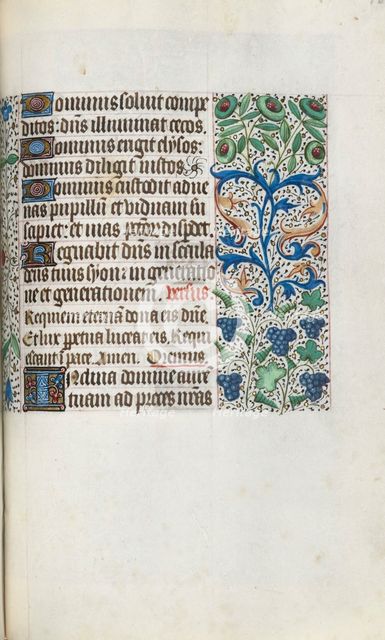 Dominus soluit compe
ditos: dns illuminat cecos.
Dominus erigit elysos:
dominus diligit iustos
Dominus custodit adue
nas pupillum et viduam su
scipiet: et vias pctorū disperdet.
Regnabit dns in secula
deus tuus syon: in generatio
ne et generationem. Versus.
Requiem eternā dona eis dne.
Et lux perpetua luceat eis. Requi
escant ī pace. Amen. Oremus
Inclina domine aure
tuam ad preces nrās
heritage
heritage